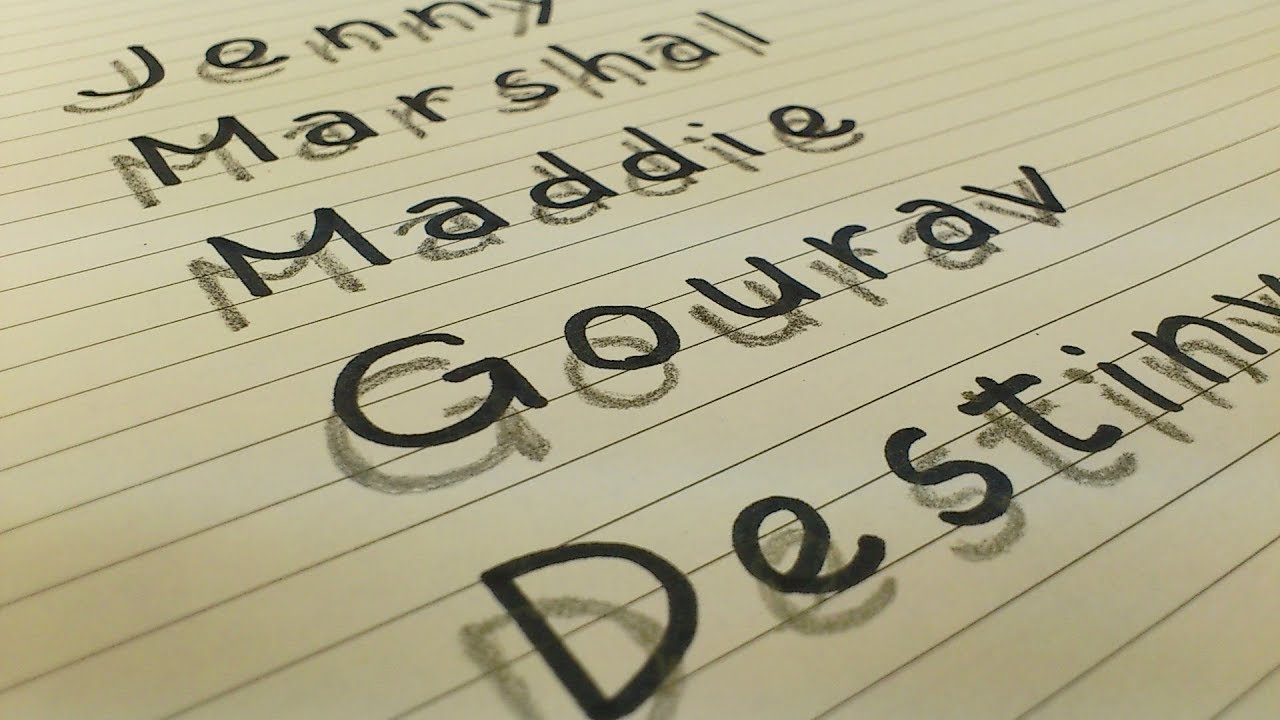 Jenny
Marshal
Maddie
Gourav
Destiny